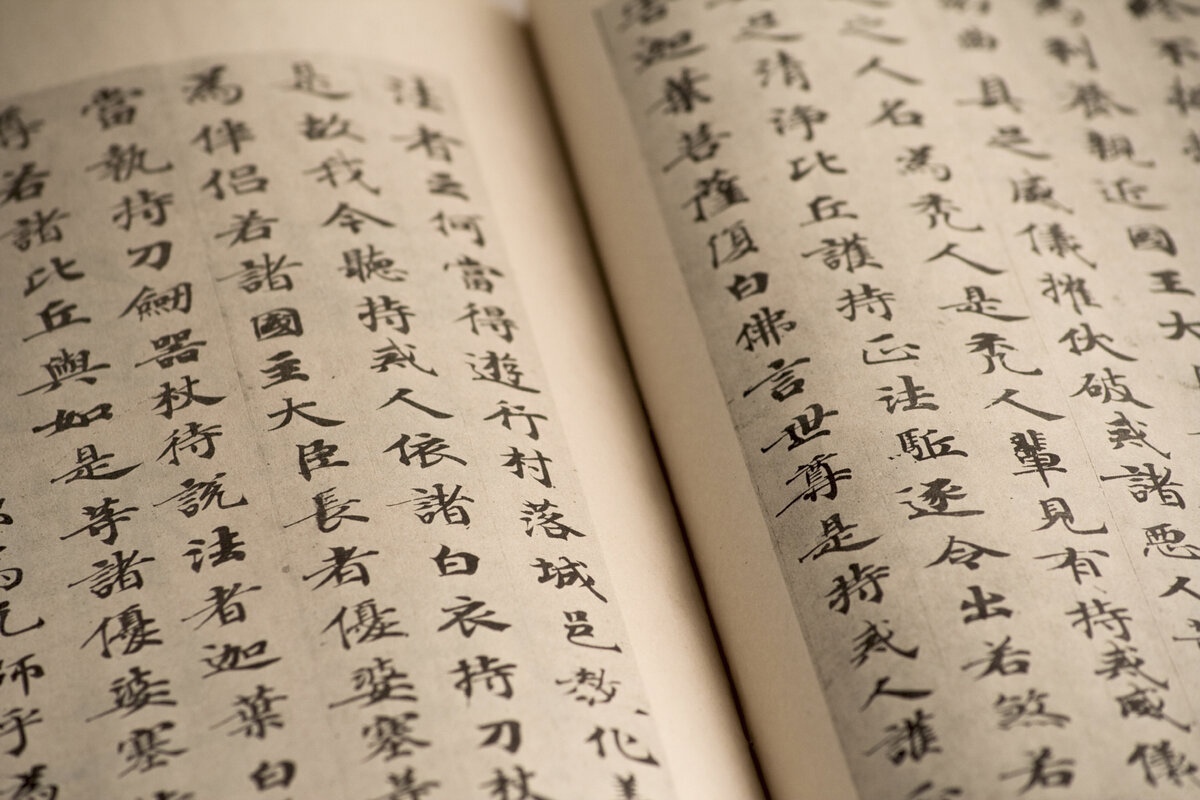 不相
利養親近國王大
曲具足威儀摧伏破戒諸惡人
之人名為禿人是禿人輩見有持戒威儀
足清淨比丘護持正法駈逐令出若煞若
害迦葉菩薩復白佛言世尊是持戒人護
法者云何當得遊行村落城邑教化
是故我今聽持戒人依諸白衣持刀杖
為伴侶若諸國主大臣長者優婆塞等
當執持刀劒器杖待說法者迦葉白
尊若諸比丘與如是等諸優婆塞
師乎為